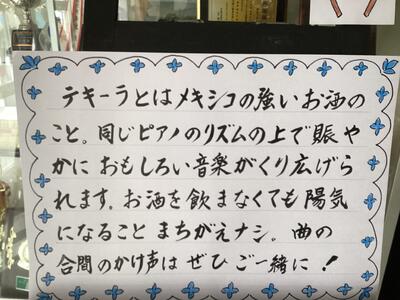 テキーラとはメキシコの強いお酒の
こと。同じピアノのリズムの上で賑や
かに おもしろい音楽がくり広げら
れます。お酒を飲まなくても陽気
になること まちがえナシ。曲の
合間のかけ声は ぜひ ご一緒に!